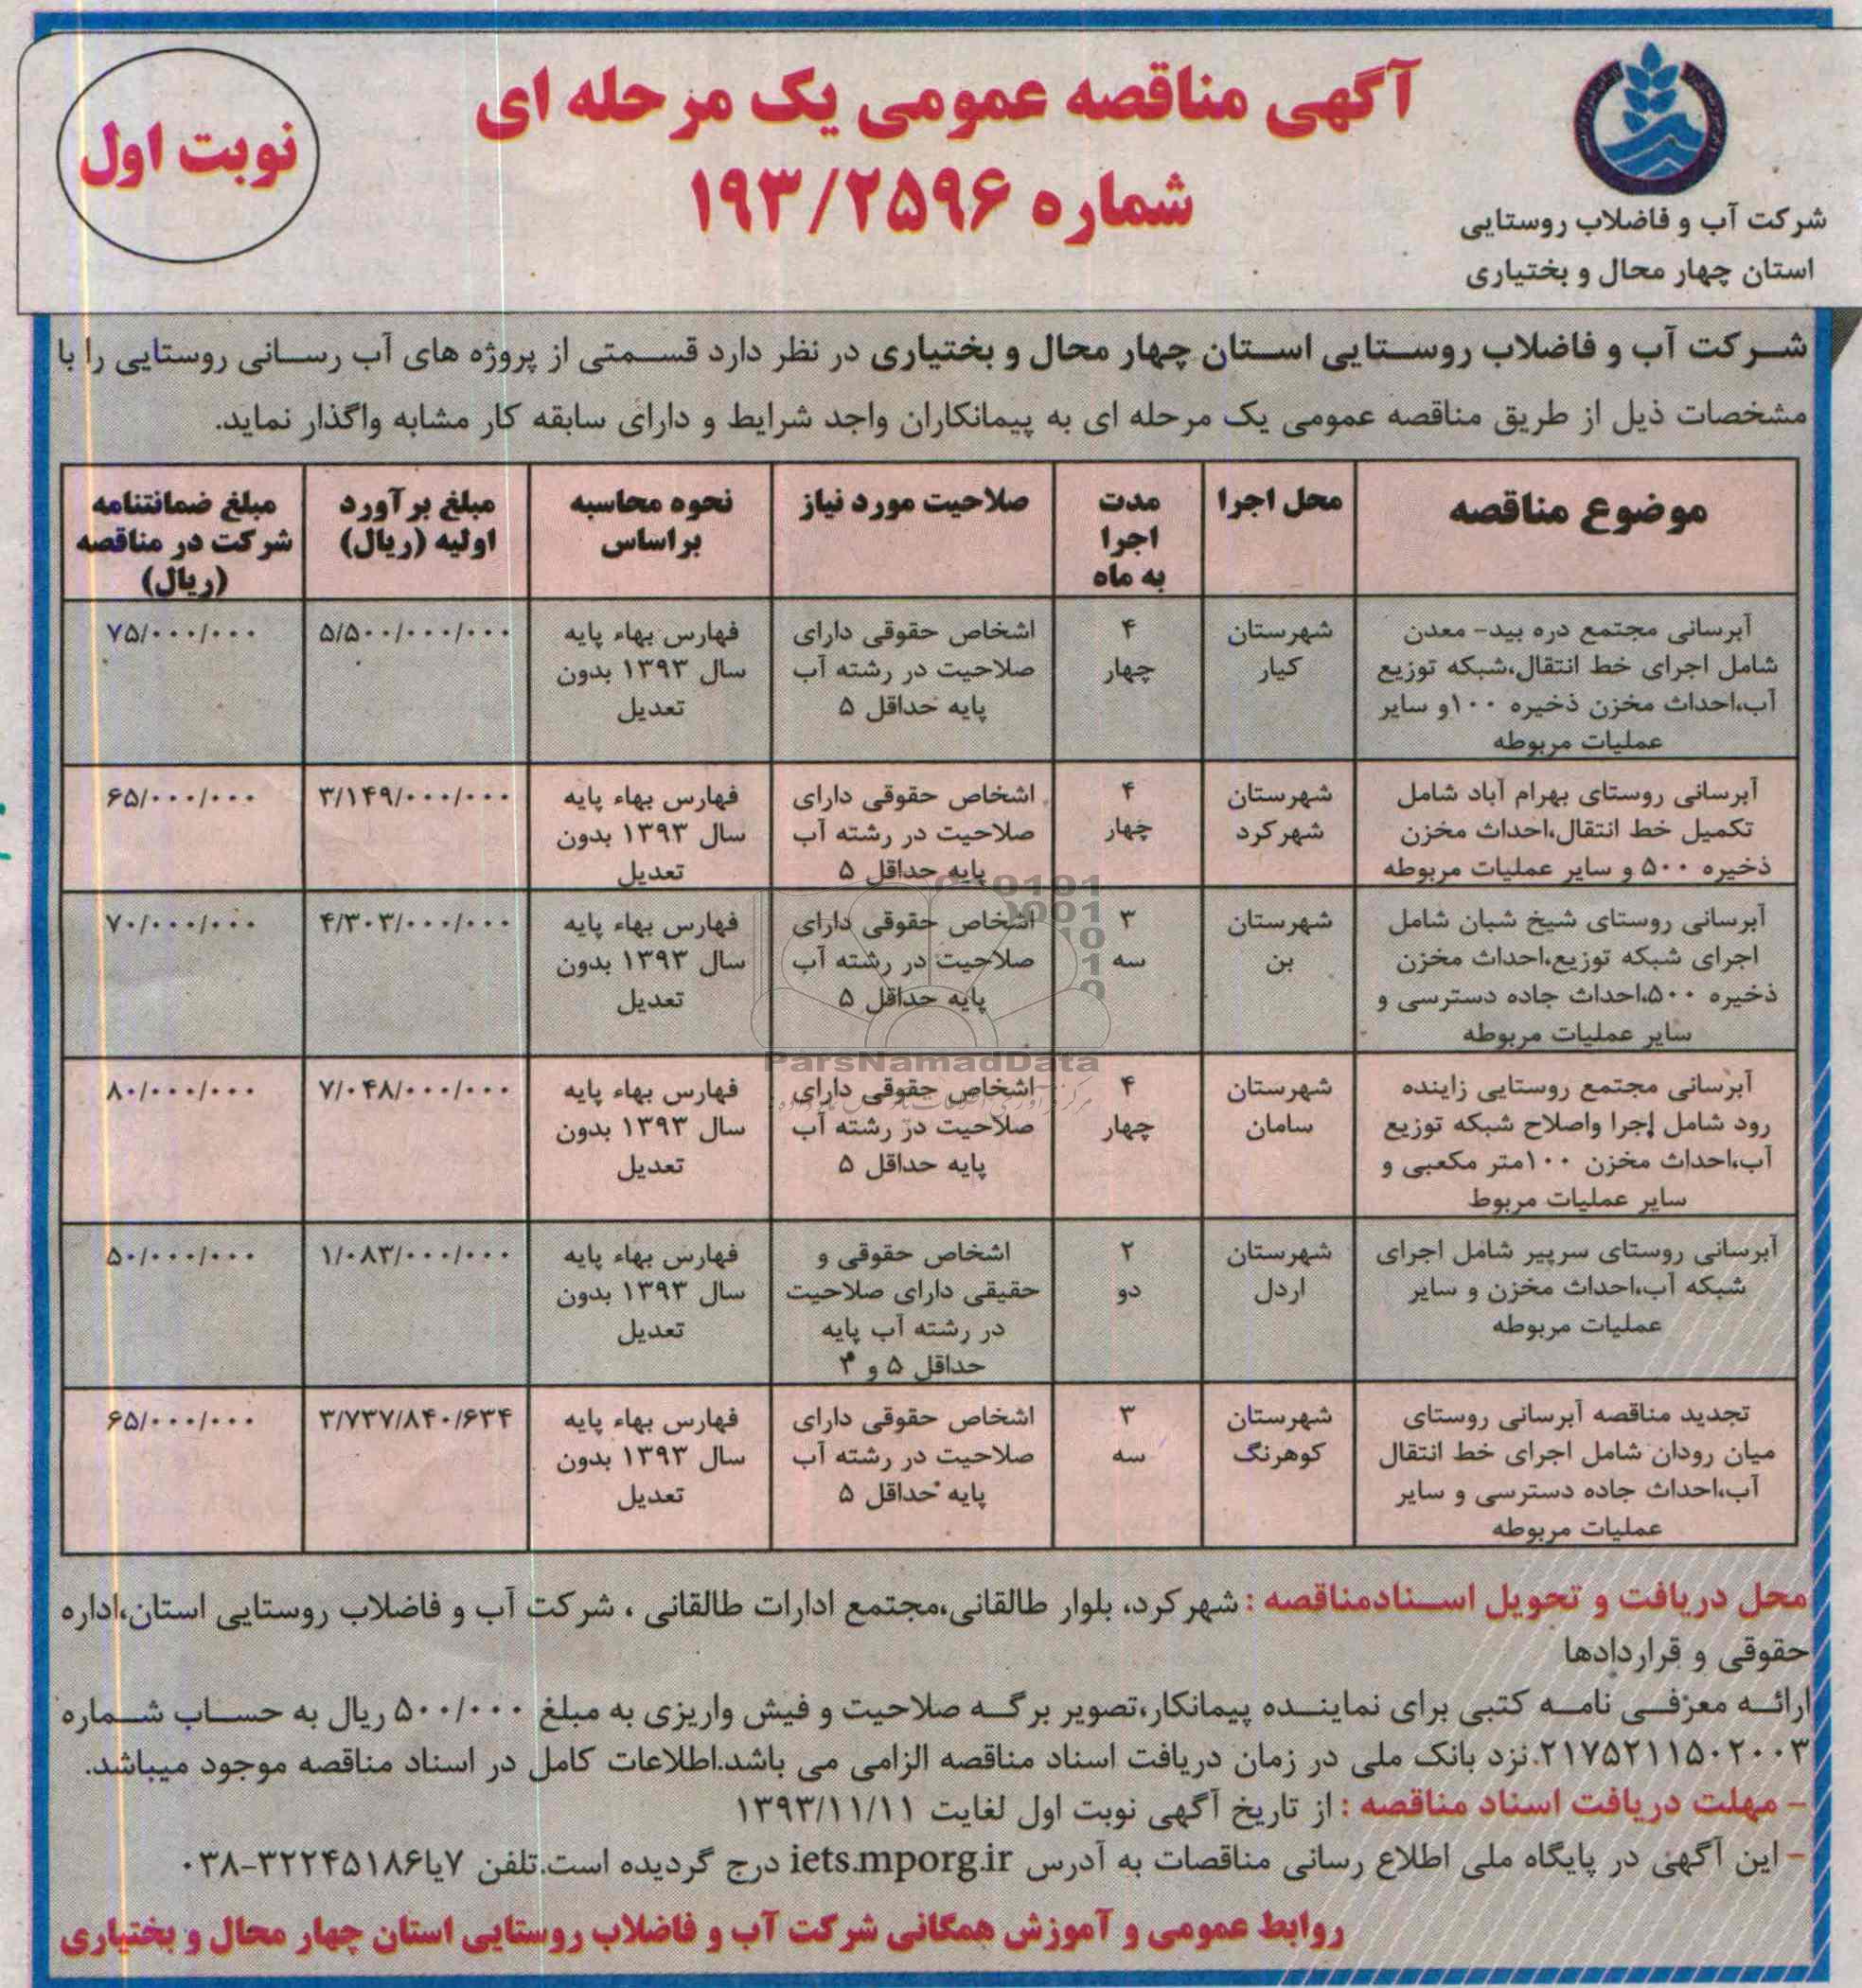 آگهی مناقصه عمومی یک مرحله ای
شماره ۱۹۳/۲۵۹۶
نوبت اول
شرکت آب و فاضلاب روستایی
استان چهار محال و بختیاری
شرکت آب و فاضلاب روستایی استان چهار محال و بختیاری در نظر دارد قسمتی از پروژه های آب رسانی روستایی را با
مشخصات ذیل از طریق مناقصه عمومی یک مرحله ای به پیمانکاران واجد شرایط و دارای سابقه کار مشابه واگذار نماید.
موضوع مناقصه
محل اجرا
مدت
اجرا
به ماه
صلاحیت مورد نیاز
نحوه محاسبه
براساس
مبلغ برآورد
اولیه (ریال)
مبلغ ضمانتنامه
شرکت در مناقصه
(ریال)
آبرسانی مجتمع دره بید- معدن
شامل اجرای خط انتقال،شبکه توزیع
آب،احداث مخزن ذخیره ۱۰۰و سایر
عملیات مربوطه
شهرستان
کیار
۴
چهار
اشخاص حقوقی دارای
صلاحیت در رشته آب
پایه حداقل ۵
فهارس بهاء پایه
سال ۱۳۹۳ بدون
تعدیل
۵/۵۰۰/۰۰۰/۰۰۰
۷۵/۰۰۰/۰۰۰
آبرسانی روستای بهرام آباد شامل
تکمیل خط انتقال،احداث مخزن
ذخیره ۵۰۰ و سایر عملیات مربوطه
شهرستان
شهرکرد
۴
چهار
اشخاص حقوقی دارای
صلاحیت در رشته آب
پایه حداقل ۵
فهارس بهاء پایه
سال ۱۳۹۳ بدون
تعدیل
۳/۱۴۹/۰۰۰/۰۰۰
۶۵/۰۰۰/۰۰۰
آبرسانی روستای شیخ شبان شامل
اجرای شبکه توزیع،احداث مخزن
ذخیره ۵۰۰،احداث جاده دسترسی و
سایر عملیات مربوطه
شهرستان
بن
۳
سه
اشخاص حقوقی دارای
صلاحیت در رشته آب
پایه حداقل ۵
فهارس بهاء پایه
سال ۱۳۹۳ بدون
تعدیل
۴/۳۰۳/۰۰۰/۰۰۰
۷۰/۰۰۰/۰۰۰
آبرسانی مجتمع روستایی زاینده
رود شامل اجرا واصلاح شبکه توزیع
آب،احداث مخزن ۱۰۰متر مکعبی و
سایر عملیات مربوط
شهرستان
سامان
۴
چهار
اشخاص حقوقی دارای
صلاحیت در رشته آب
پایه حداقل ۵
فهارس بهاء پایه
سال ۱۳۹۳ بدون
تعدیل
۷/۰۴۸/۰۰۰/۰۰۰
۸۰/۰۰۰/۰۰۰
آبرسانی روستای سرپیر شامل اجرای
شبکه آب،احداث مخزن و سایر
عملیات مربوطه
شهرستان
اردل
۲
دو
اشخاص حقوقی و
حقیقی دارای صلاحیت
در رشته آب پایه
حداقل ۵ و ۳
فهارس بهاء پایه
سال ۱۳۹۳ بدون
تعدیل
۱/۰۸۳/۰۰۰/۰۰۰
۵۰/۰۰۰/۰۰۰
تجدید مناقصه آبرسانی روستای
میان رودان شامل اجرای خط انتقال
آب،احداث جاده دسترسی و سایر
عملیات مربوطه
شهرستان
کوهرنگ
۳
سه
اشخاص حقوقی دارای
صلاحیت در رشته آب
پایه حداقل ۵
فهارس بهاء پایه
سال ۱۳۹۳ بدون
تعدیل
۳/۷۳۷/۸۴۰/۶۳۴
۶۵/۰۰۰/۰۰۰
ParsNamadData
محل دریافت و تحویل اسنادمناقصه : شهرکرد، بلوار طالقانی،مجتمع ادارات طالقانی ، شرکت آب و فاضلاب روستایی استان،اداره
حقوقی و قراردادها
ارائه معرفی نامه کتبی برای نماینده پیمانکار،تصویر برگه صلاحیت و فیش واریزی به مبلغ ۵۰۰/۰۰۰ ریال به حساب شماره
۲۱۷۵۲۱۱۵۰۲۰۰۳.نزد بانک ملی در زمان دریافت اسناد مناقصه الزامی می باشد.اطلاعات کامل در اسناد مناقصه موجود میباشد.
- مهلت دریافت اسناد مناقصه : از تاریخ آگهی نوبت اول لغایت ۱۳۹۳/۱۱/۱۱
- این آگهی در پایگاه ملی اطلاع رسانی مناقصات به آدرس iets.mporg.ir درج گردیده است.تلفن ۷یا۳۲۲۴۵۱۸۶-۰۳۸
روابط عمومی و آموزش همگانی شرکت آب و فاضلاب روستایی استان چهار محال و بختیاری